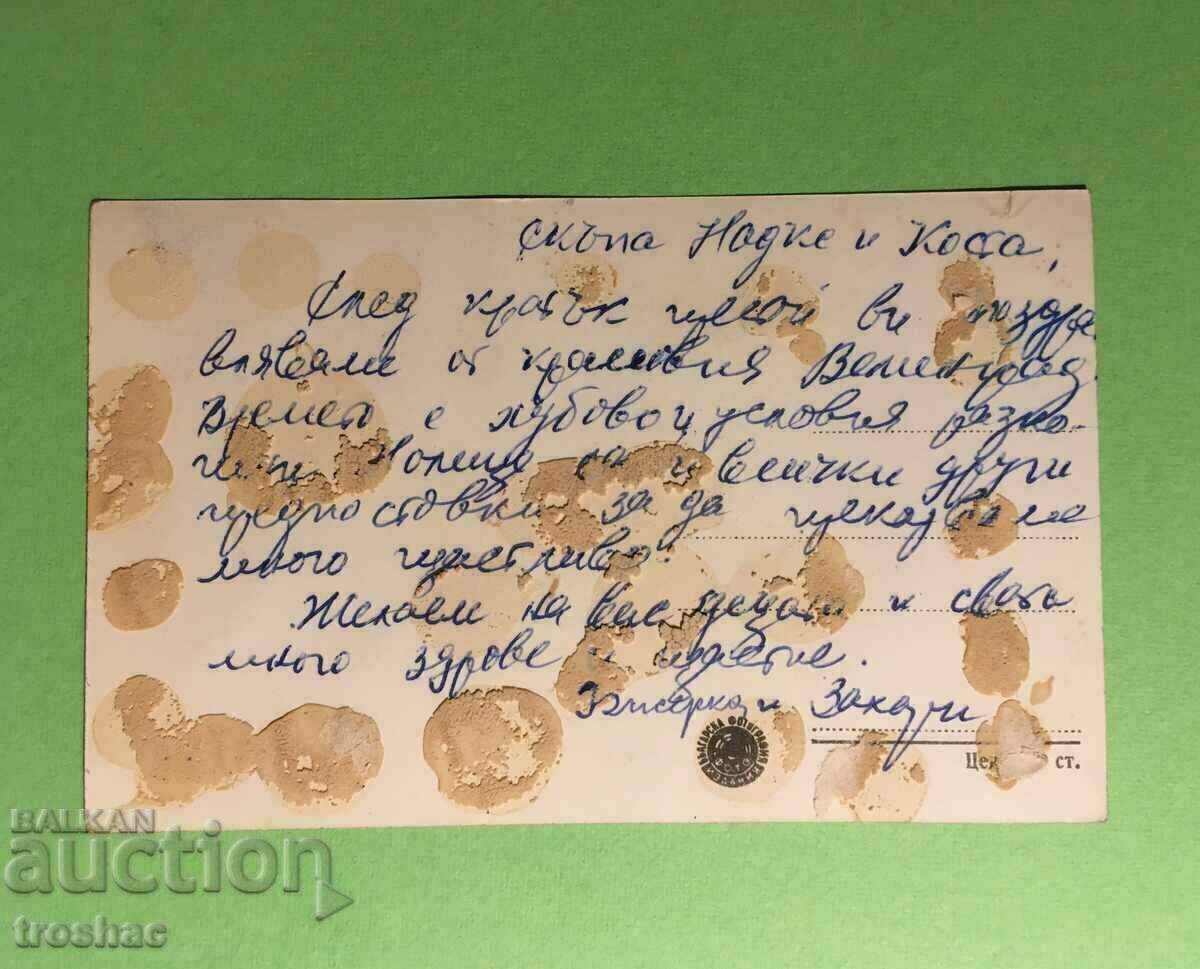 Скъпа Надке и Коста,
След кратък престой ви поздра
вляваме от красивия Велинград.
Времето е хубаво и условия разко-
шни. Налице са и всички други
предпоставки за да прекарваме
много щастливо.
Желаем на вас децата и свата
много здраве и щастие.
Бисерка и Захари
БЪЛГАРСКА ФОТОГРАФИЯ
ФОТО
ст.
BALKAN
auction
troshac